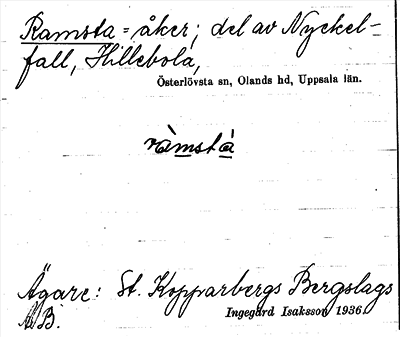 Ramsta = åker; del av Nyckel-
fall, Hillebola,
Österlövsta sn, Olands hd, Uppsala län.
ràmstá
Ägare: St. Kopparbergs Bergslags
A/B.
Ingegärd Isaksson 1936.